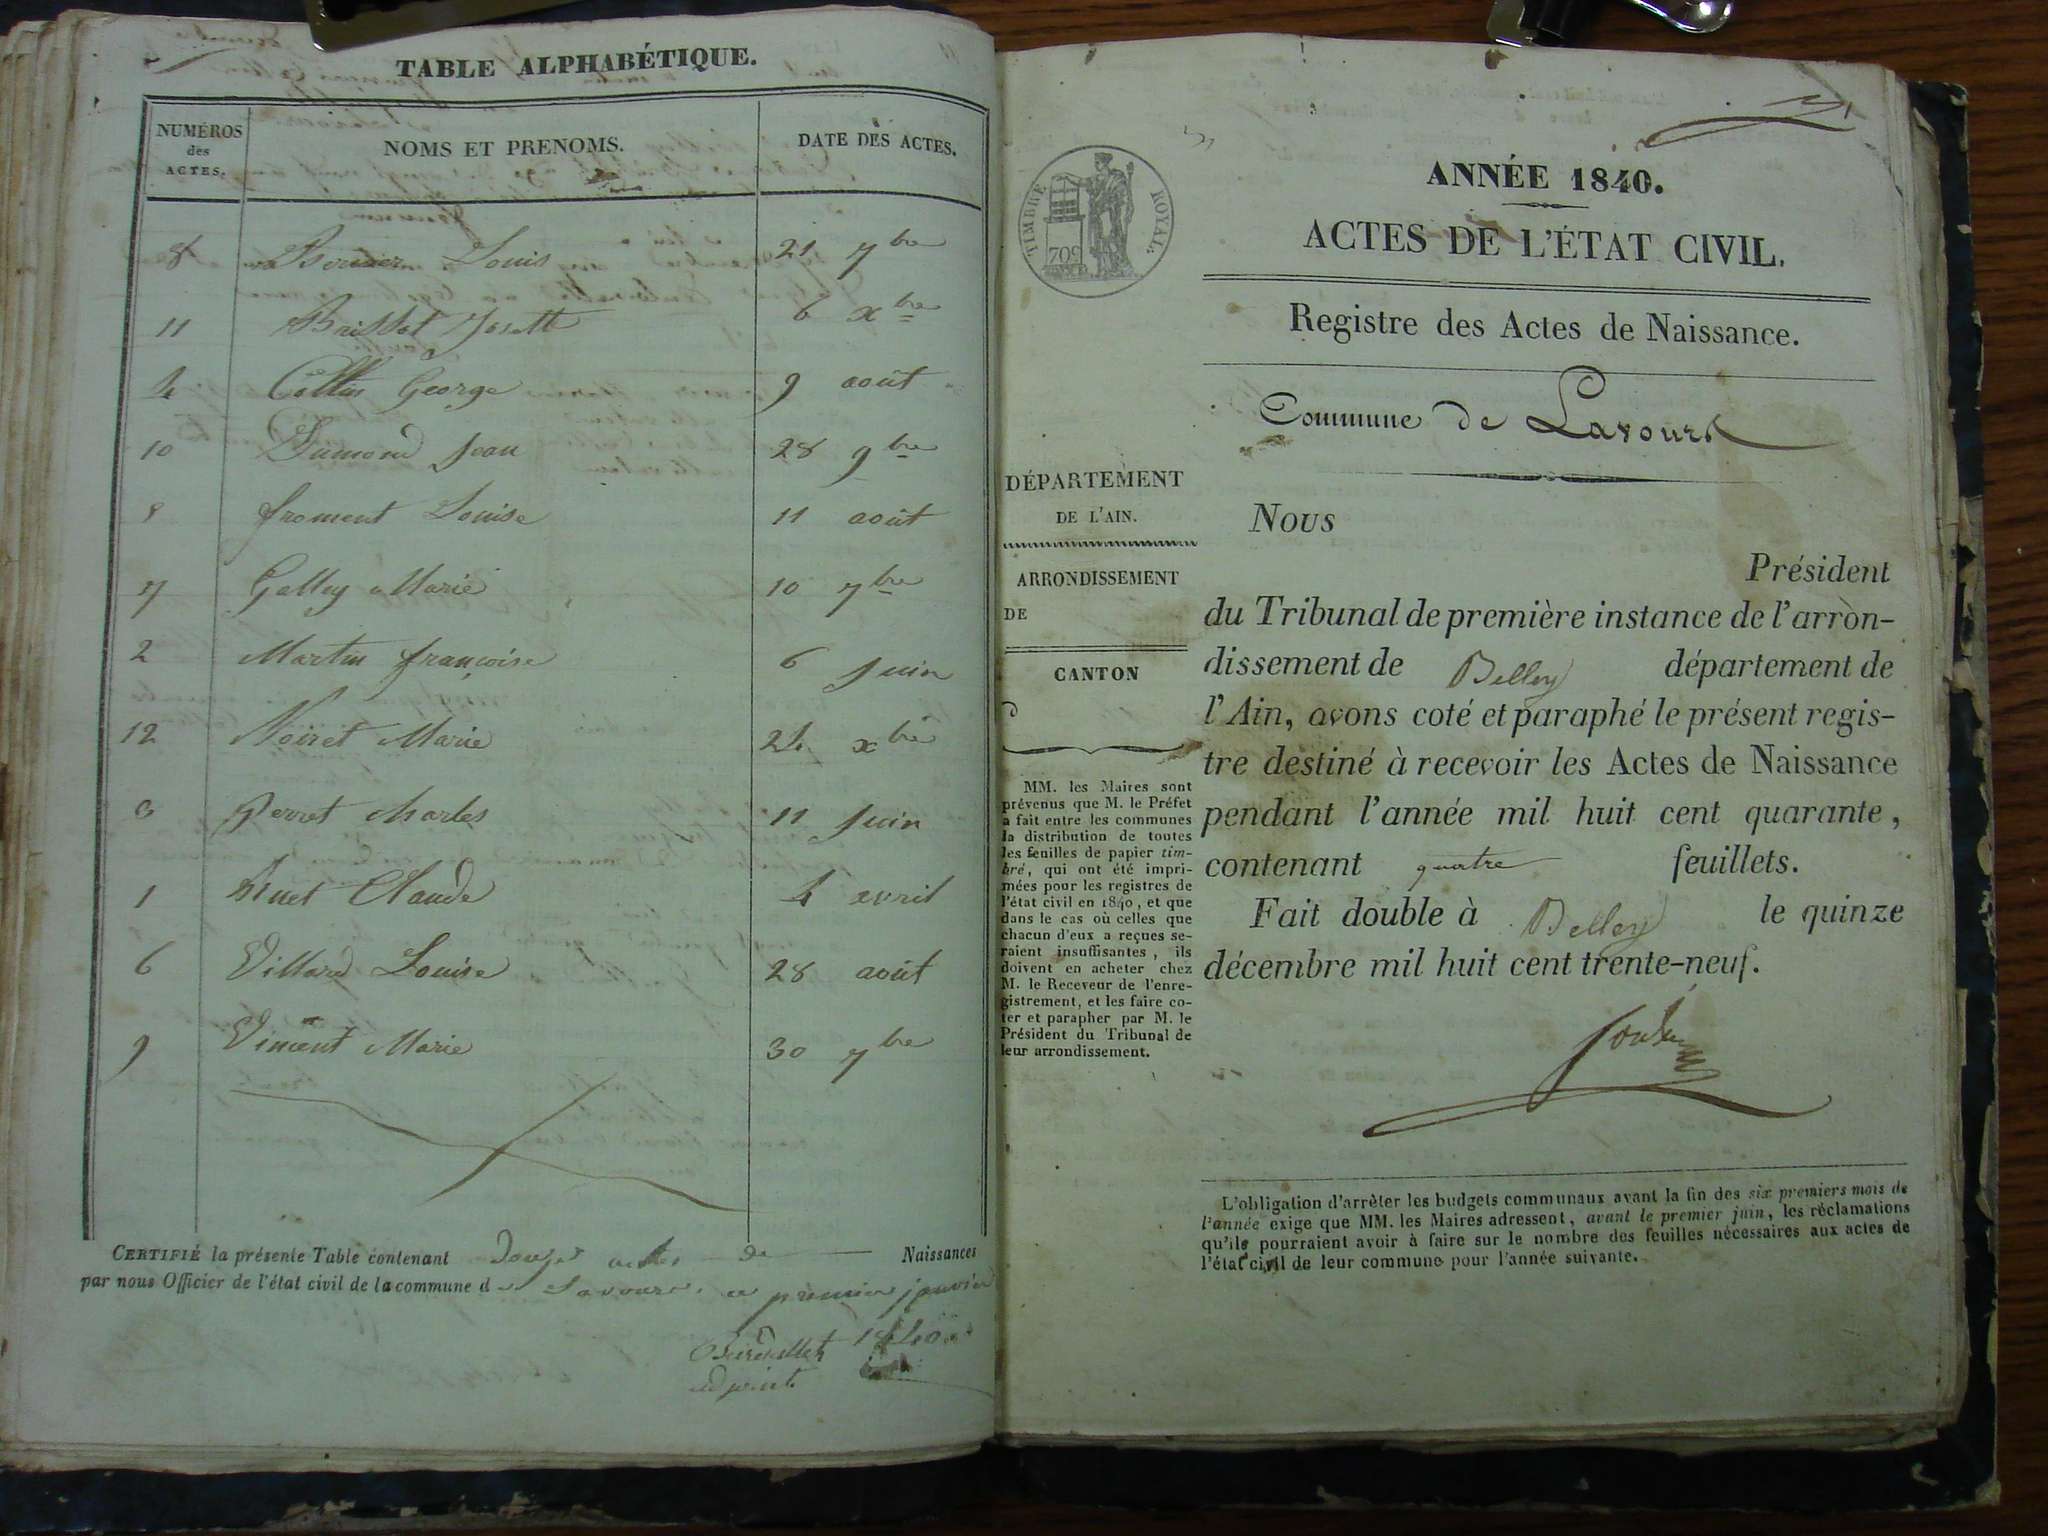 TABLE ALPHABÉTIQUE.
NUMÉROS des ACTES. NOMS ET PRENOMS. DATE DES ACTES.
8 Louis 21 7bre
11 Brissot Josette 6 xbre
4 George 9 août
10 Dumond Jean 28 9bre
froment Louise 11 août
7 Marie 10 7bre
2 Martin françoise 6 Juin
12 Noiret Marie 24 xbre
3 Perret charles 11 Juin
1 Claude 4 avril
6 Villard Louise 28 août
9 Vincent Marie 30 7bre
CERTIFIÉ la présente Table contenant Douze actes de Naissances
par nous Officier de l'état civil de la commune de Lavours, ce premier janvier
1840
adjoint
ANNÉE 1840.
ACTES DE L'ÉTAT CIVIL.
TIMBRE ROYAL.
70c
Registre des Actes de Naissance.
Commune de Lavours
DÉPARTEMENT
DE L'AIN.
ARRONDISSEMENT
DE
CANTON
MM. les Maires sont
prévenus que M. le Préfet
a fait entre les communes
la distribution de toutes
les feuilles de papier tim-
bré, qui ont été impri-
mées pour les registres de
l'état civil en 1840, et que
dans le cas où celles que
chacun d'eux a reçues se-
raient insuffisantes, ils
doivent en acheter chez
M. le Receveur de l'enre-
gistrement, et les faire co-
ter et parapher par M. le
Président du Tribunal de
leur arrondissement.
Nous
Président
du Tribunal de première instance de l'arron-
dissement de Belley département de
l'Ain, avons coté et paraphé le présent regis-
tre destiné à recevoir les Actes de Naissance
pendant l'année mil huit cent quarante,
contenant quatre feuillets.
Fait double à Belley le quinze
décembre mil huit cent trente-neuf.
L'obligation d'arrêter les budgets communaux avant la fin des six premiers mois de
l'année exige que MM. les Maires adressent, avant le premier juin, les réclamations
qu'ils pourraient avoir à faire sur le nombre des feuilles nécessaires aux actes de
l'état civil de leur commune pour l'année suivante.